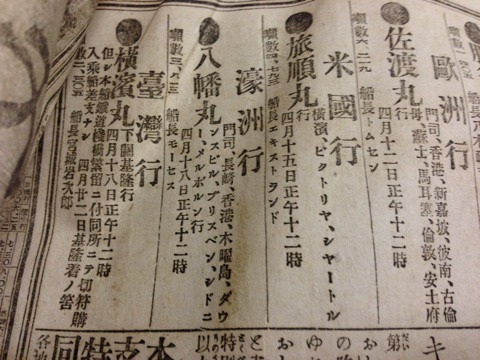 歐洲行
門司、香港、新嘉坡、彼南、古倫
母、蘇士、馬耳塞、倫敦、安土府
行
佐渡丸 四月十二日正午十二時
噸數六、二二九 船長トムセン
米國行
橫濱、ビクトリヤ、シヤートル
行
旅順丸 四月十五日正午十二時
噸數四、七九五 船長エキストランド
濠洲行
門司、長崎、香港、木曜島、ダウ
ンスビル、ブリスベン、シドニ
ー、メルボルン行
八幡丸 四月十八日正午十二時
噸數三、八一三 船長モーセス
臺灣行
橫濱丸 下ノ關基隆行 四月十八日正午十二時
但シ本船鐵道棧橋繫留ニ付同所ニテ切符購
入乘船差支ナシ 四月廿二日基隆着ノ筈
數二、三〇五 船長